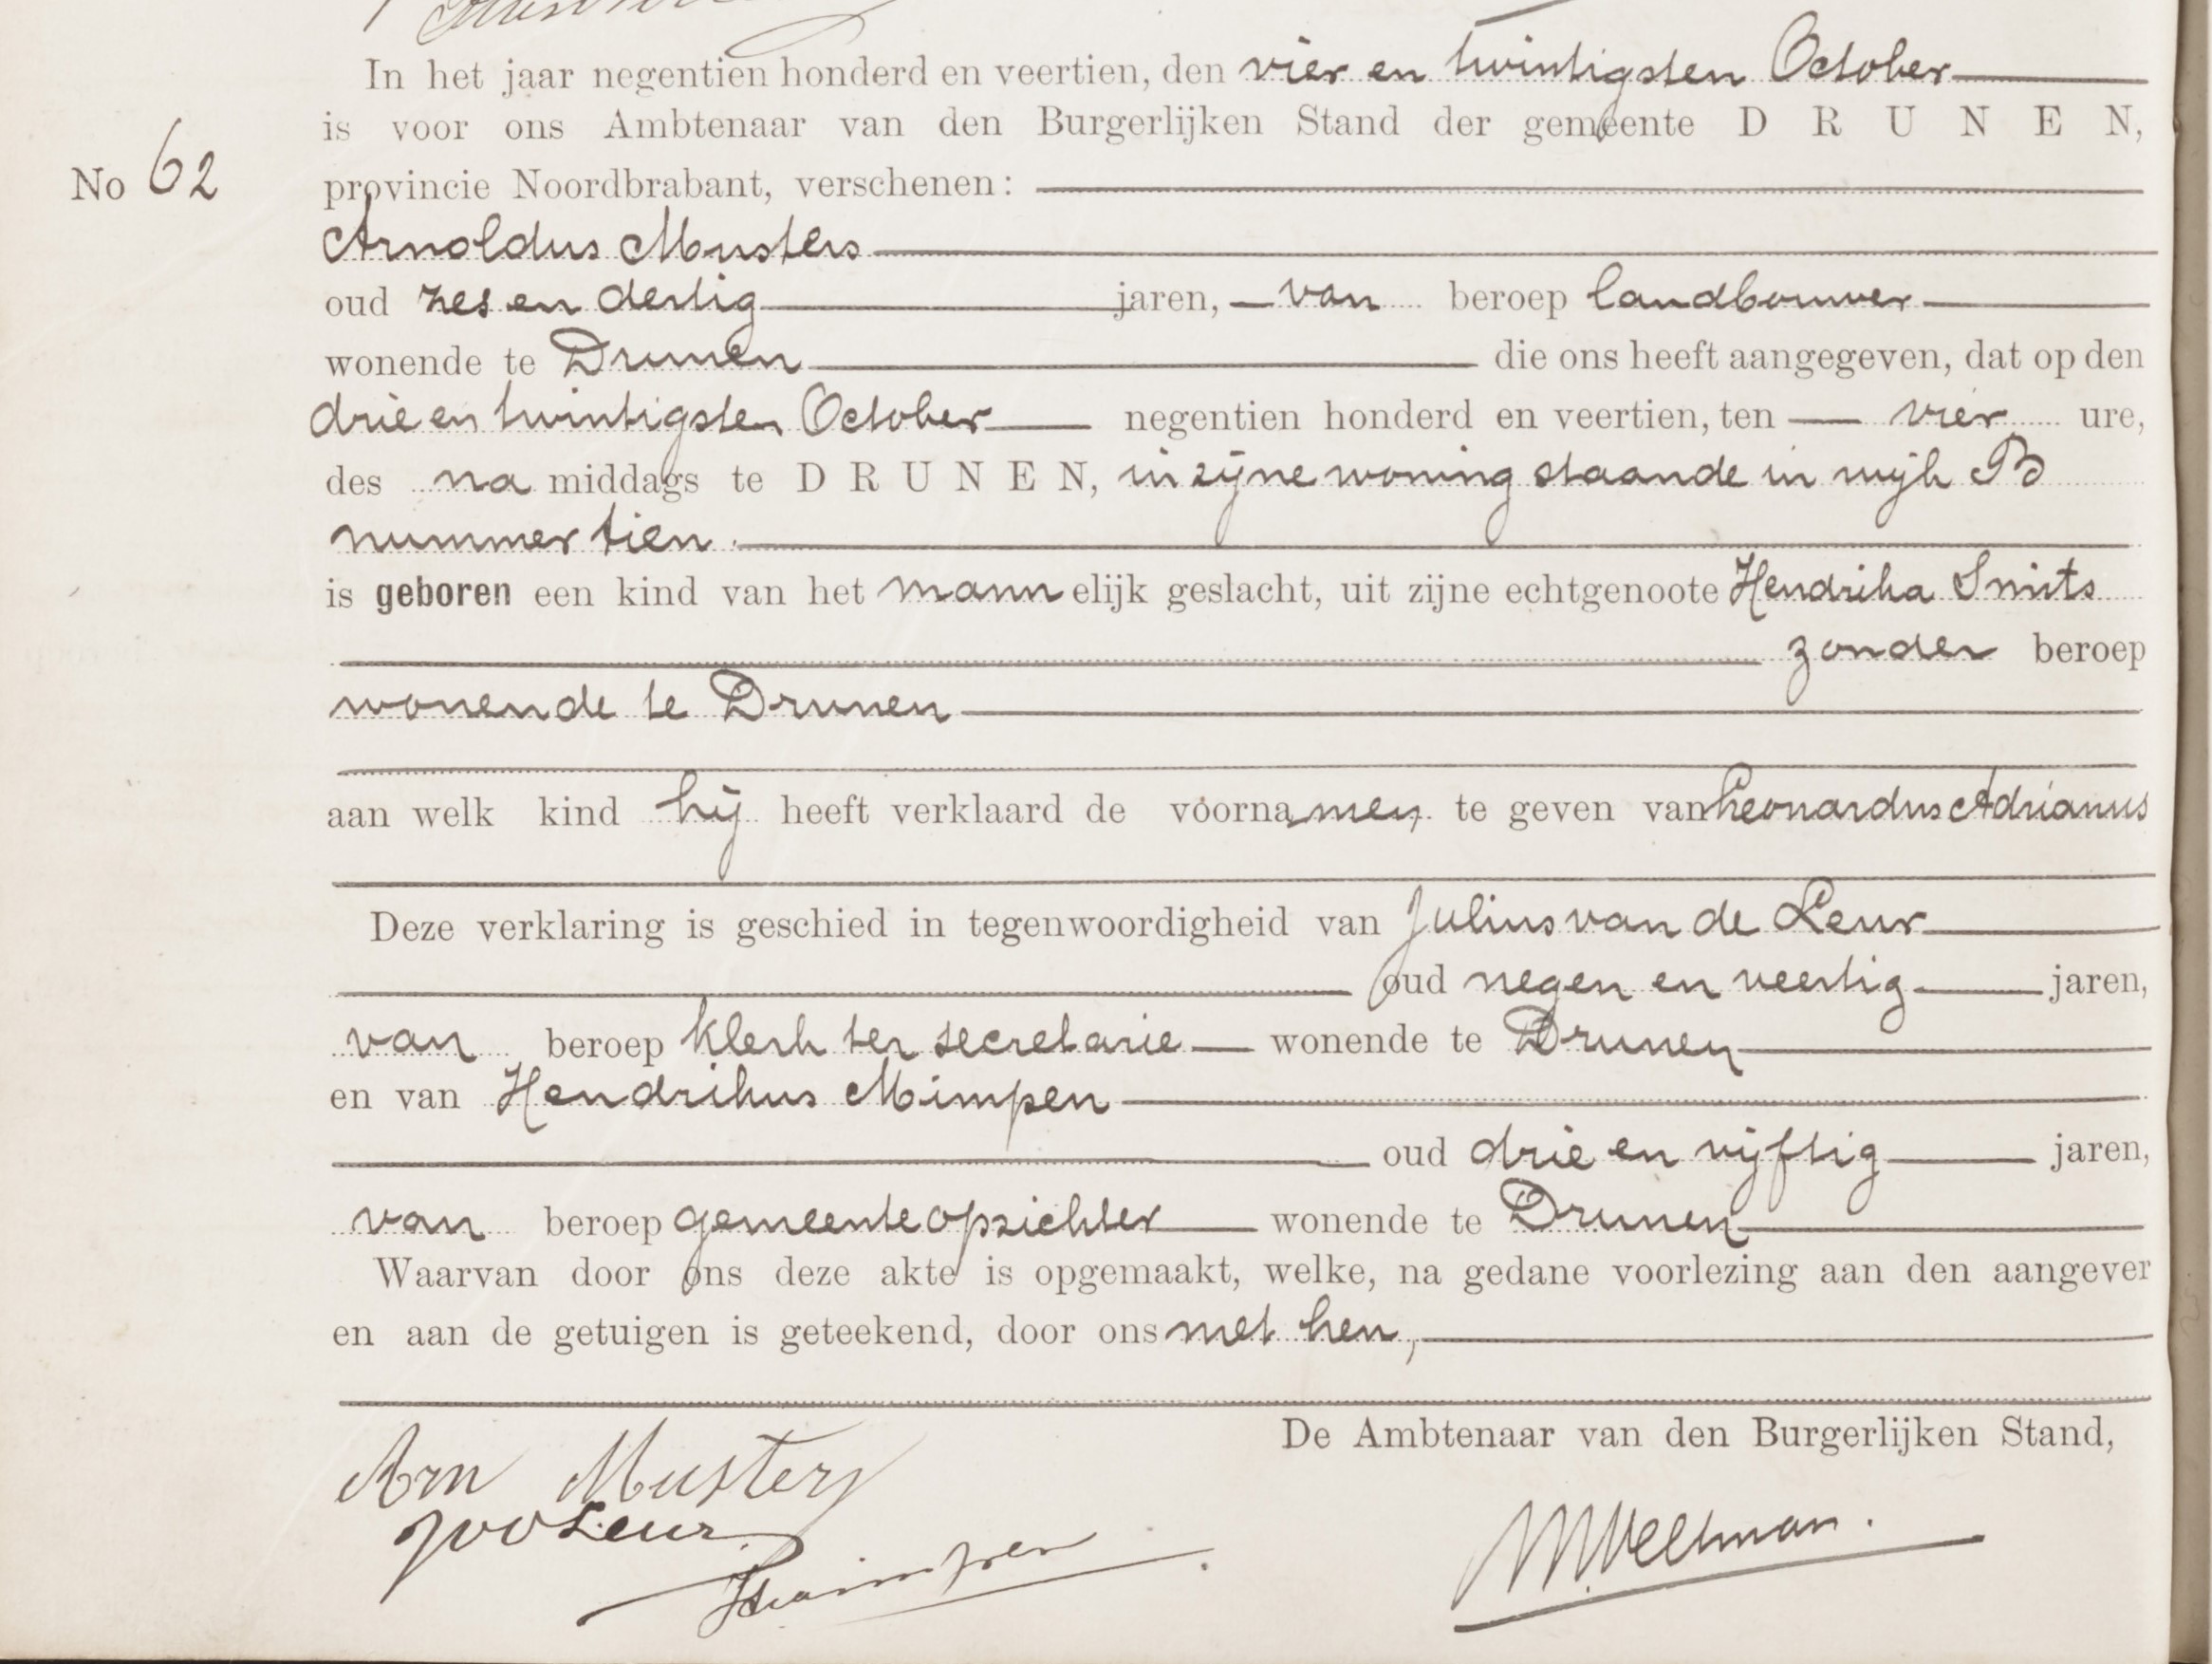 In het jaar negentien honderd en veertien, den vier en twintigsten October
is voor ons Ambtenaar van den Burgerlijken Stand der gemeente DRUNEN,
No 62
provincie Noordbrabant, verschenen:
Arnoldus Musters
oud zes en dertig jaren, van beroep landbouwer
wonende te Drunen die ons heeft aangegeven, dat op den
drie en twintigsten October negentien honderd en veertien, ten vier ure,
des na middags te DRUNEN, in zijne woning staande in wijk B
nummer tien.
is geboren een kind van het mannelijk geslacht, uit zijne echtgenoote Hendrika Smits
zonder beroep
wonende te Drunen
aan welk kind hij heeft verklaard de voornamen te geven van Leonardus Adrianus
Deze verklaring is geschied in tegenwoordigheid van Julius van de Leur
oud negen en veertig jaren,
van beroep klerk ter secretarie wonende te Drunen
en van Hendrikus Mimpen
oud drie en vijftig jaren,
van beroep gemeenteopzichter wonende te Drunen
Waarvan door ons deze akte is opgemaakt, welke, na gedane voorlezing aan den aangever
en aan de getuigen is geteekend, door ons met hen,
De Ambtenaar van den Burgerlijken Stand,
Arn Musters
JvdLeur